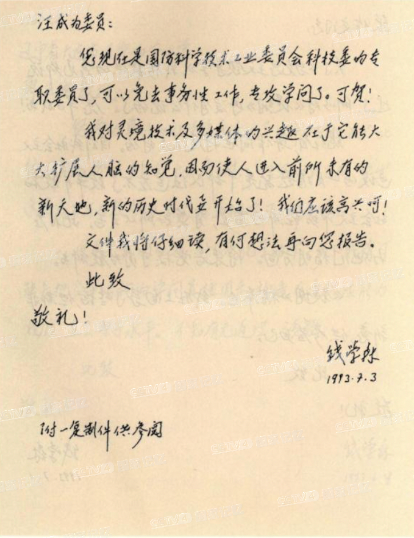 汪成为委员：
您现在是国防科学技术工业委员会科技委的专
职委员了，可以免去事务性工作，专攻学问了。可贺！
我对灵境技术及多媒体的兴趣在于它能大
大扩展人脑的知觉，因而使人进入前所未有的
新天地，新的历史时代要开始了！我们应该高兴呵！
文件我将仔细读，有何想法再向您报告。
此致
敬礼！
钱学森
1993.7.3
附一复制件供参阅